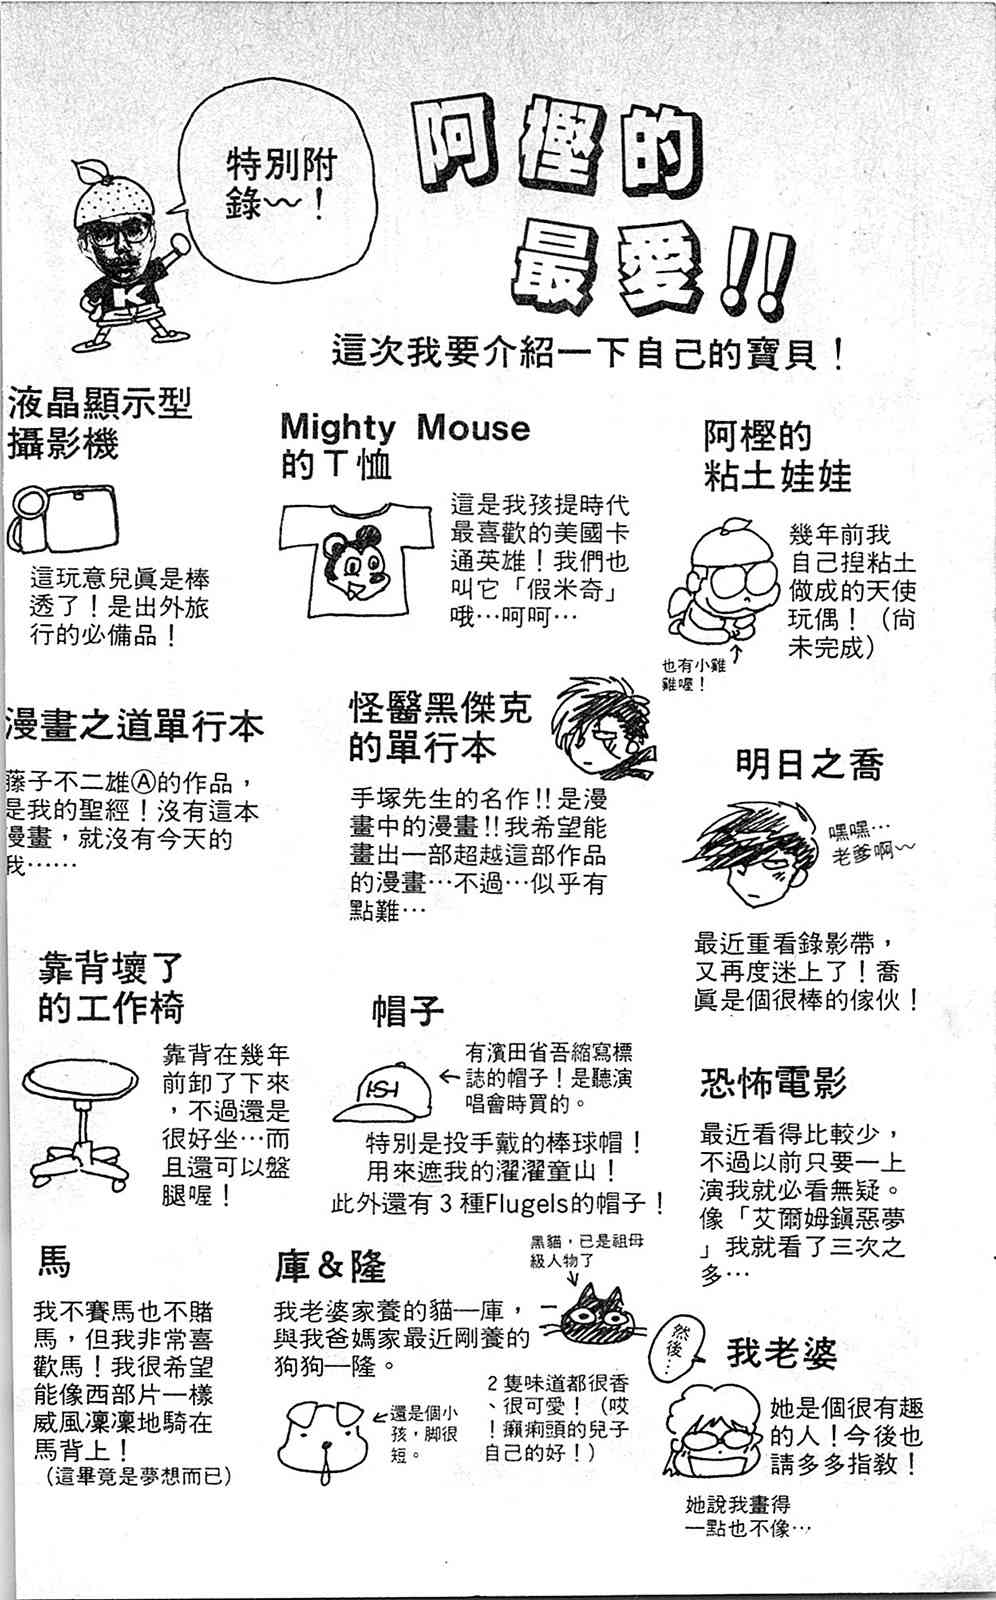 特別附
錄～！
阿樫的
最愛!!
這次我要介紹一下自己的寶貝！
液晶顯示型
攝影機
這玩意兒眞是棒
透了！是出外旅
行的必備品！
Mighty Mouse
的T恤
這是我孩提時代
最喜歡的美國卡
通英雄！我們也
叫它「假米奇」
哦…呵呵…
阿樫的
粘土娃娃
幾年前我
自己捏粘土
做成的天使
玩偶！（尙
未完成）
也有小雞
雞喔！
漫畫之道單行本
藤子不二雄Ⓐ的作品，
是我的聖經！沒有這本
漫畫，就沒有今天的
我……
怪醫黑傑克
的單行本
手塚先生的名作!!是漫
畫中的漫畫!!我希望能
畫出一部超越這部作品
的漫畫…不過…似乎有
點難…
明日之喬
嘿嘿…
老爹啊～
最近重看錄影帶，
又再度迷上了！喬
眞是個很棒的傢伙！
靠背壞了
的工作椅
靠背在幾年
前卸了下來
，不過還是
很好坐…而
且還可以盤
腿喔！
帽子
HSH
有濱田省吾縮寫標
誌的帽子！是聽演
唱會時買的。
特別是投手戴的棒球帽！
用來遮我的濯濯童山！
此外還有3種Flugels的帽子！
恐怖電影
最近看得比較少，
不過以前只要一上
演我就必看無疑。
像「艾爾姆鎭惡夢
」我就看了三次之
多…
馬
我不賽馬也不賭
馬，但我非常喜
歡馬！我很希望
能像西部片一樣
威風凜凜地騎在
馬背上！
（這畢竟是夢想而已）
庫＆隆
我老婆家養的貓—庫，
與我爸媽家最近剛養的
狗狗—隆。
黑貓，已是祖母
級人物了
還是個小
孩，脚很
短。
2隻味道都很香
、很可愛！（哎
！癩痢頭的兒子
自己的好！）
然後…
我老婆
她是個很有趣
的人！今後也
請多多指教！
她說我畫得
一點也不像…